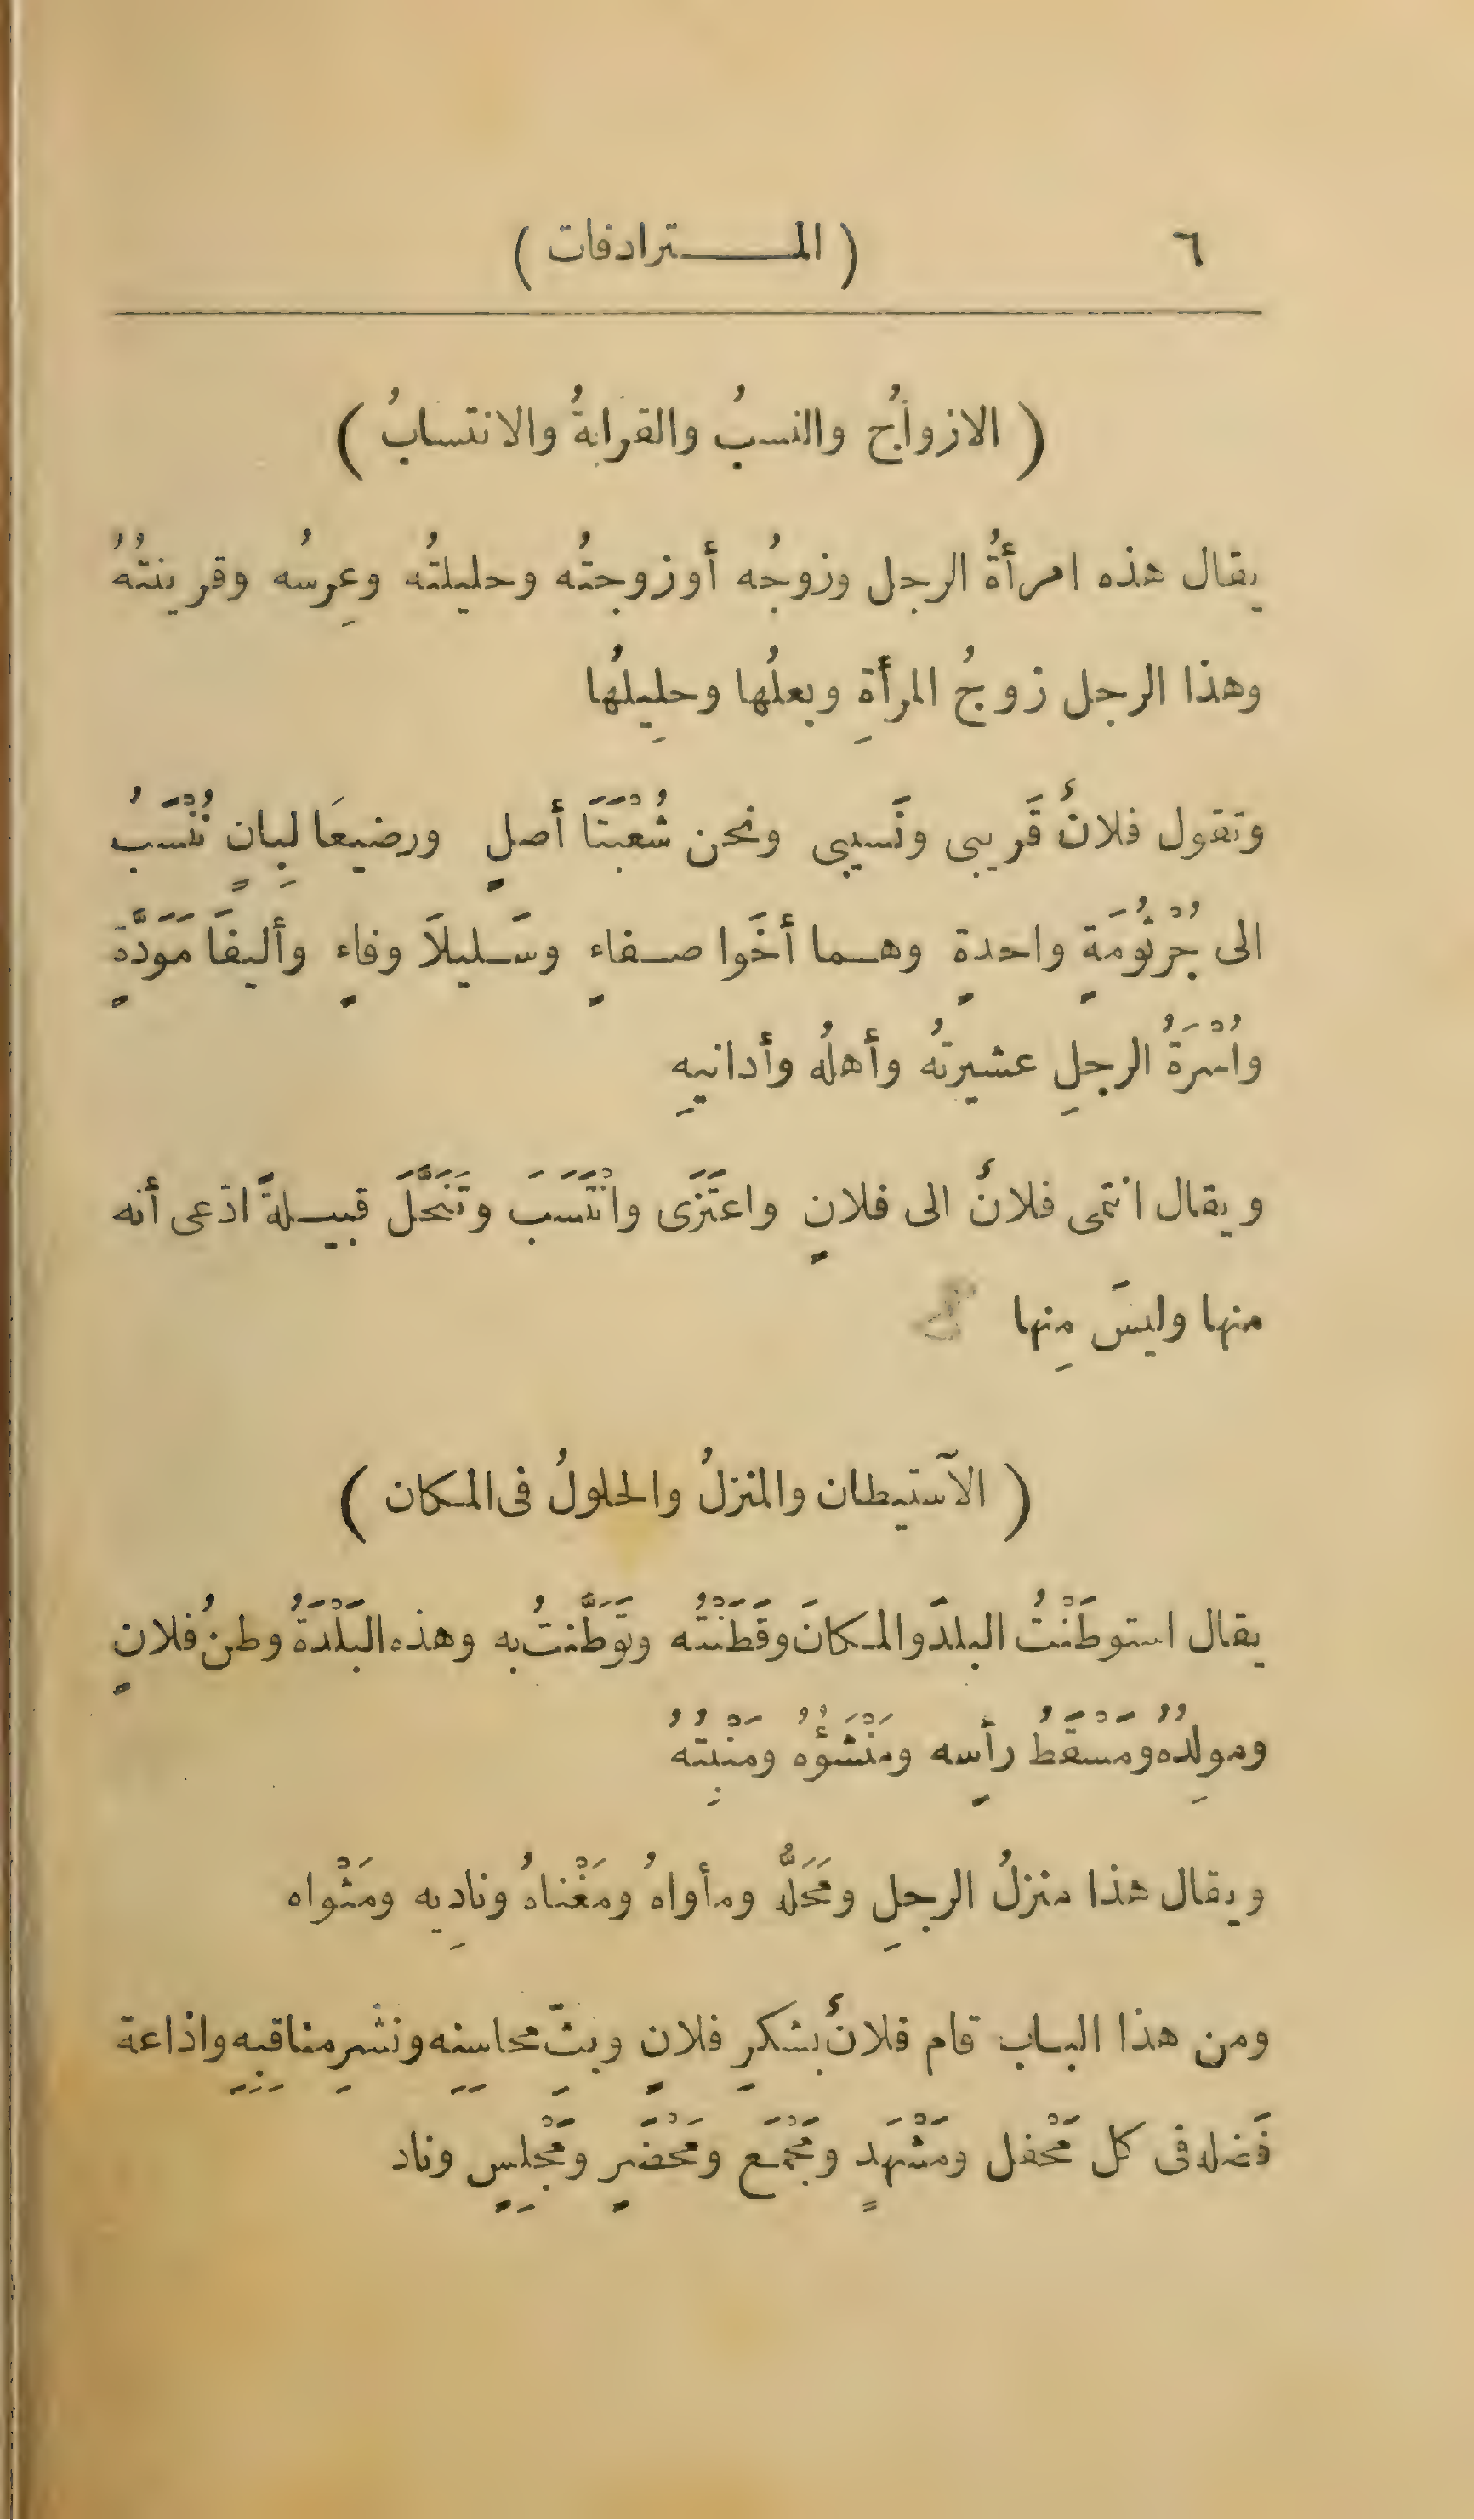 ٦ ( المــــترادفات )
( الازواجُ والنسبُ والقرابةُ والانتسابُ )
يقال هذه امرأةُ الرجل وزوجُه أوزوجتُه وحليلتُه وعِرسُه وقرينتُهُ
وهذا الرجل زوجُ المرأةِ وبعلُها وحلِيلُها
وتقول فلانٌ قَريبى ونَسيبى ونحن شُعْبَتَا أصلٍ ورضيعَا لِبانٍ نُنْسَبُ
الى جُرْثُومَةٍ واحدةٍ وهـما أخَوا صـفاءٍ وسَـليلاَ وفاءٍ وأليفَا مَوَدَّةٍ
واُسْرَةُ الرجلِ عشيرتُه وأهلُه وأدانيهِ
ويقال انتمى فلانٌ الى فلانٍ واعتَزَى وانْتَسَبَ وتَنَحَّلَ قبيـلةً ادّعى أنه
منها وليسَ مِنها
( الآستيطان والمنزلُ والحلولُ فى المكان )
يقال استوطَنْتُ البلدَ والمكانَ وقَطَنْتُه وتَوَطَّنتُ به وهذه البَلْدَةُ وطنُ فلانٍ
ومولِدُهُ ومَسْقَطُ رأسِه ومَنْشَؤُه ومَنْبِتُهُ
ويقال هذا منزلُ الرجلِ ومَحَلُّه ومأواهُ ومَغْناهُ ونادِيه ومَثْواه
ومن هذا الباب قام فلانٌ بشكرِ فلانٍ وبثِّ محاسِنِه ونشْرِ مناقِبِهِ واذاعة
فَضله فى كل مَحْفل ومَشْهَدٍ ومَجْمَع ومَحْضَرٍ ومَجْلِسٍ وناد